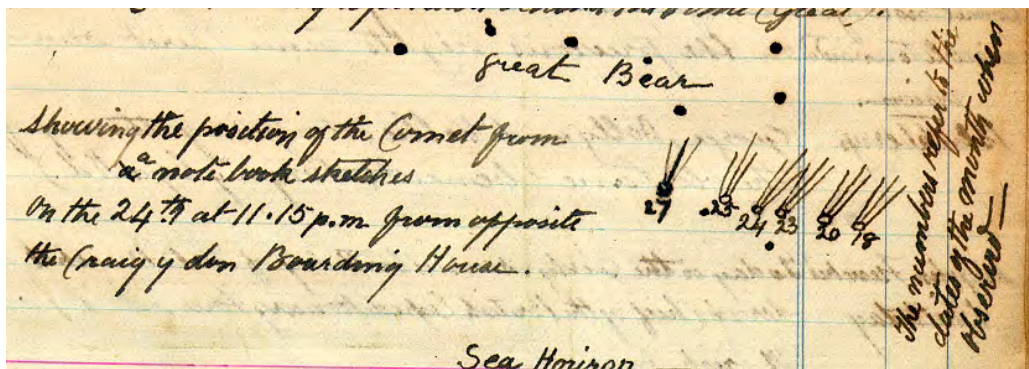 great Bear
Showing the position of the Comet from
a note book sketches
on the 24th at 11.15 p.m. from opposite
the Craig y don Boarding House.
27 25 24 23 20 18
Sea Horizon
The numbers refer to the
dates of the month when
observed